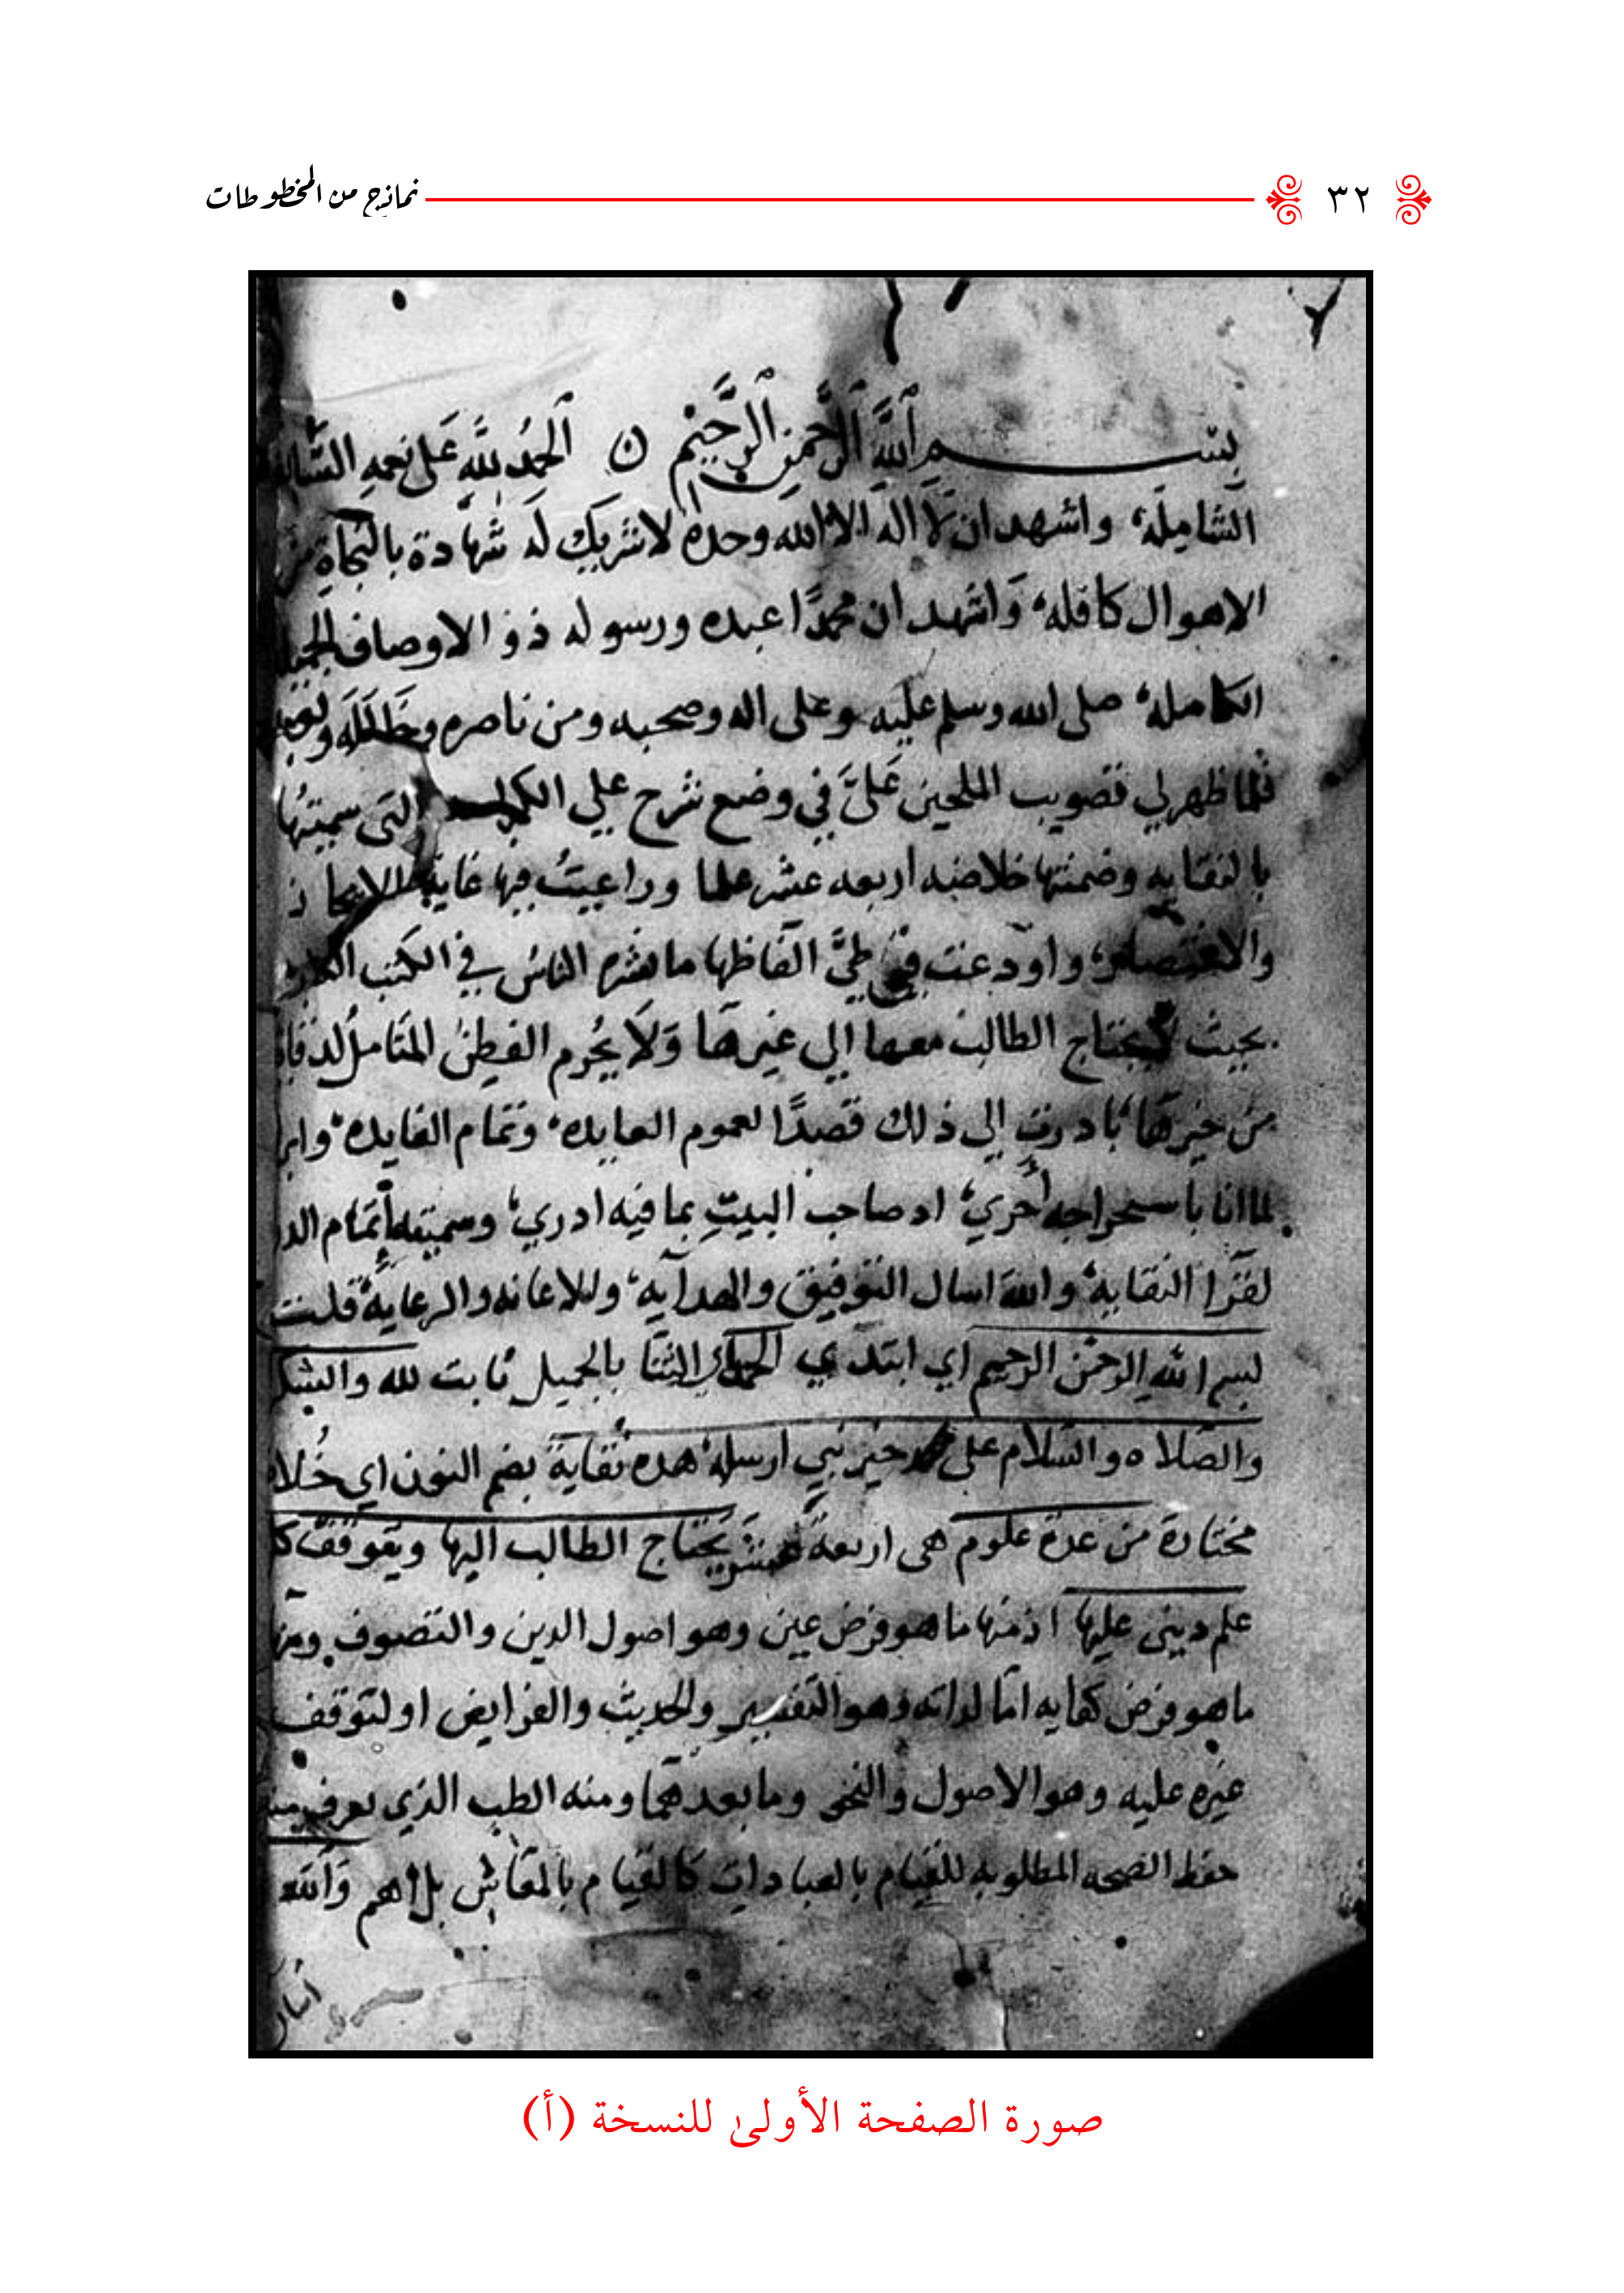 ٣٢ نماذج من المخطوطات
بسم الله الرحمن الرحيم ن الحمد لله على نعمه
الشاملة، واشهد ان لا اله الا الله وحده لا شريك له شهادة بالنجاة من
الاهوال كافله، واشهد ان محمدًا عبده ورسوله ذو الاوصاف الجميلة
الكامله، صلى الله وسلم عليه وعلى اله وصحبه ومن ناصره
فلما ظهر لي تصويب الملحين عَلىَّ في وضع شرح علي التى سميتُها
بالنقايه وضمنتها خلاصه اربعه عشر علما وراعيتُ فيها غاية الايجاز
والاختصار، واودعت في طيَّ الفاظها ما نشره الناس في الكتب الكبار
بحيث لا يحتاج الطالب معها الي غيرها وَلاَ يُحرم الفطِن المتامل لدقا
من خيرها، بادرت الي ذلك قصدًا لعموم العايده، وتمام الفايده،
لما انا باسحراجه أحري، اد صاحب البيتِ بما فيه ادري، وسميته إتمام الد
لقرا النقاية، والله اسال التوفيق والهداية، والاعانه والرعاية، قلت
بسم الله الرحمن الرحيم اي ابتدي الحمد اي الثنا بالجميل ثابت لله والشكر
والصلاه والسلام على خير نبي ارسله، هده نُقاية بضم النون اي خُلا
مختارة من عدة علوم هى اربعة عشر يحتاج الطالب اليها ويتوقف ك
علم دينى عليها اذ منها ما هو فرض عين وهو اصول الدين والتصوف ومنها
ما هو فرض كفايه امّا لداته وهو التفسير والحديث والفرايض او لتوقف
غيره عليه وهو الاصول والنحو وما بعدهما ومنه الطب الذي يعرف منه
حفظ الصحه المطلوبه للقيام بالعبادات كالقيام بالمعاش بل اهم وَالله
صورة الصفحة الأولىٰ للنسخة (أ)